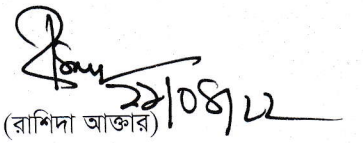 ২৯/০৪/২২
(রাশিদা আক্তার)